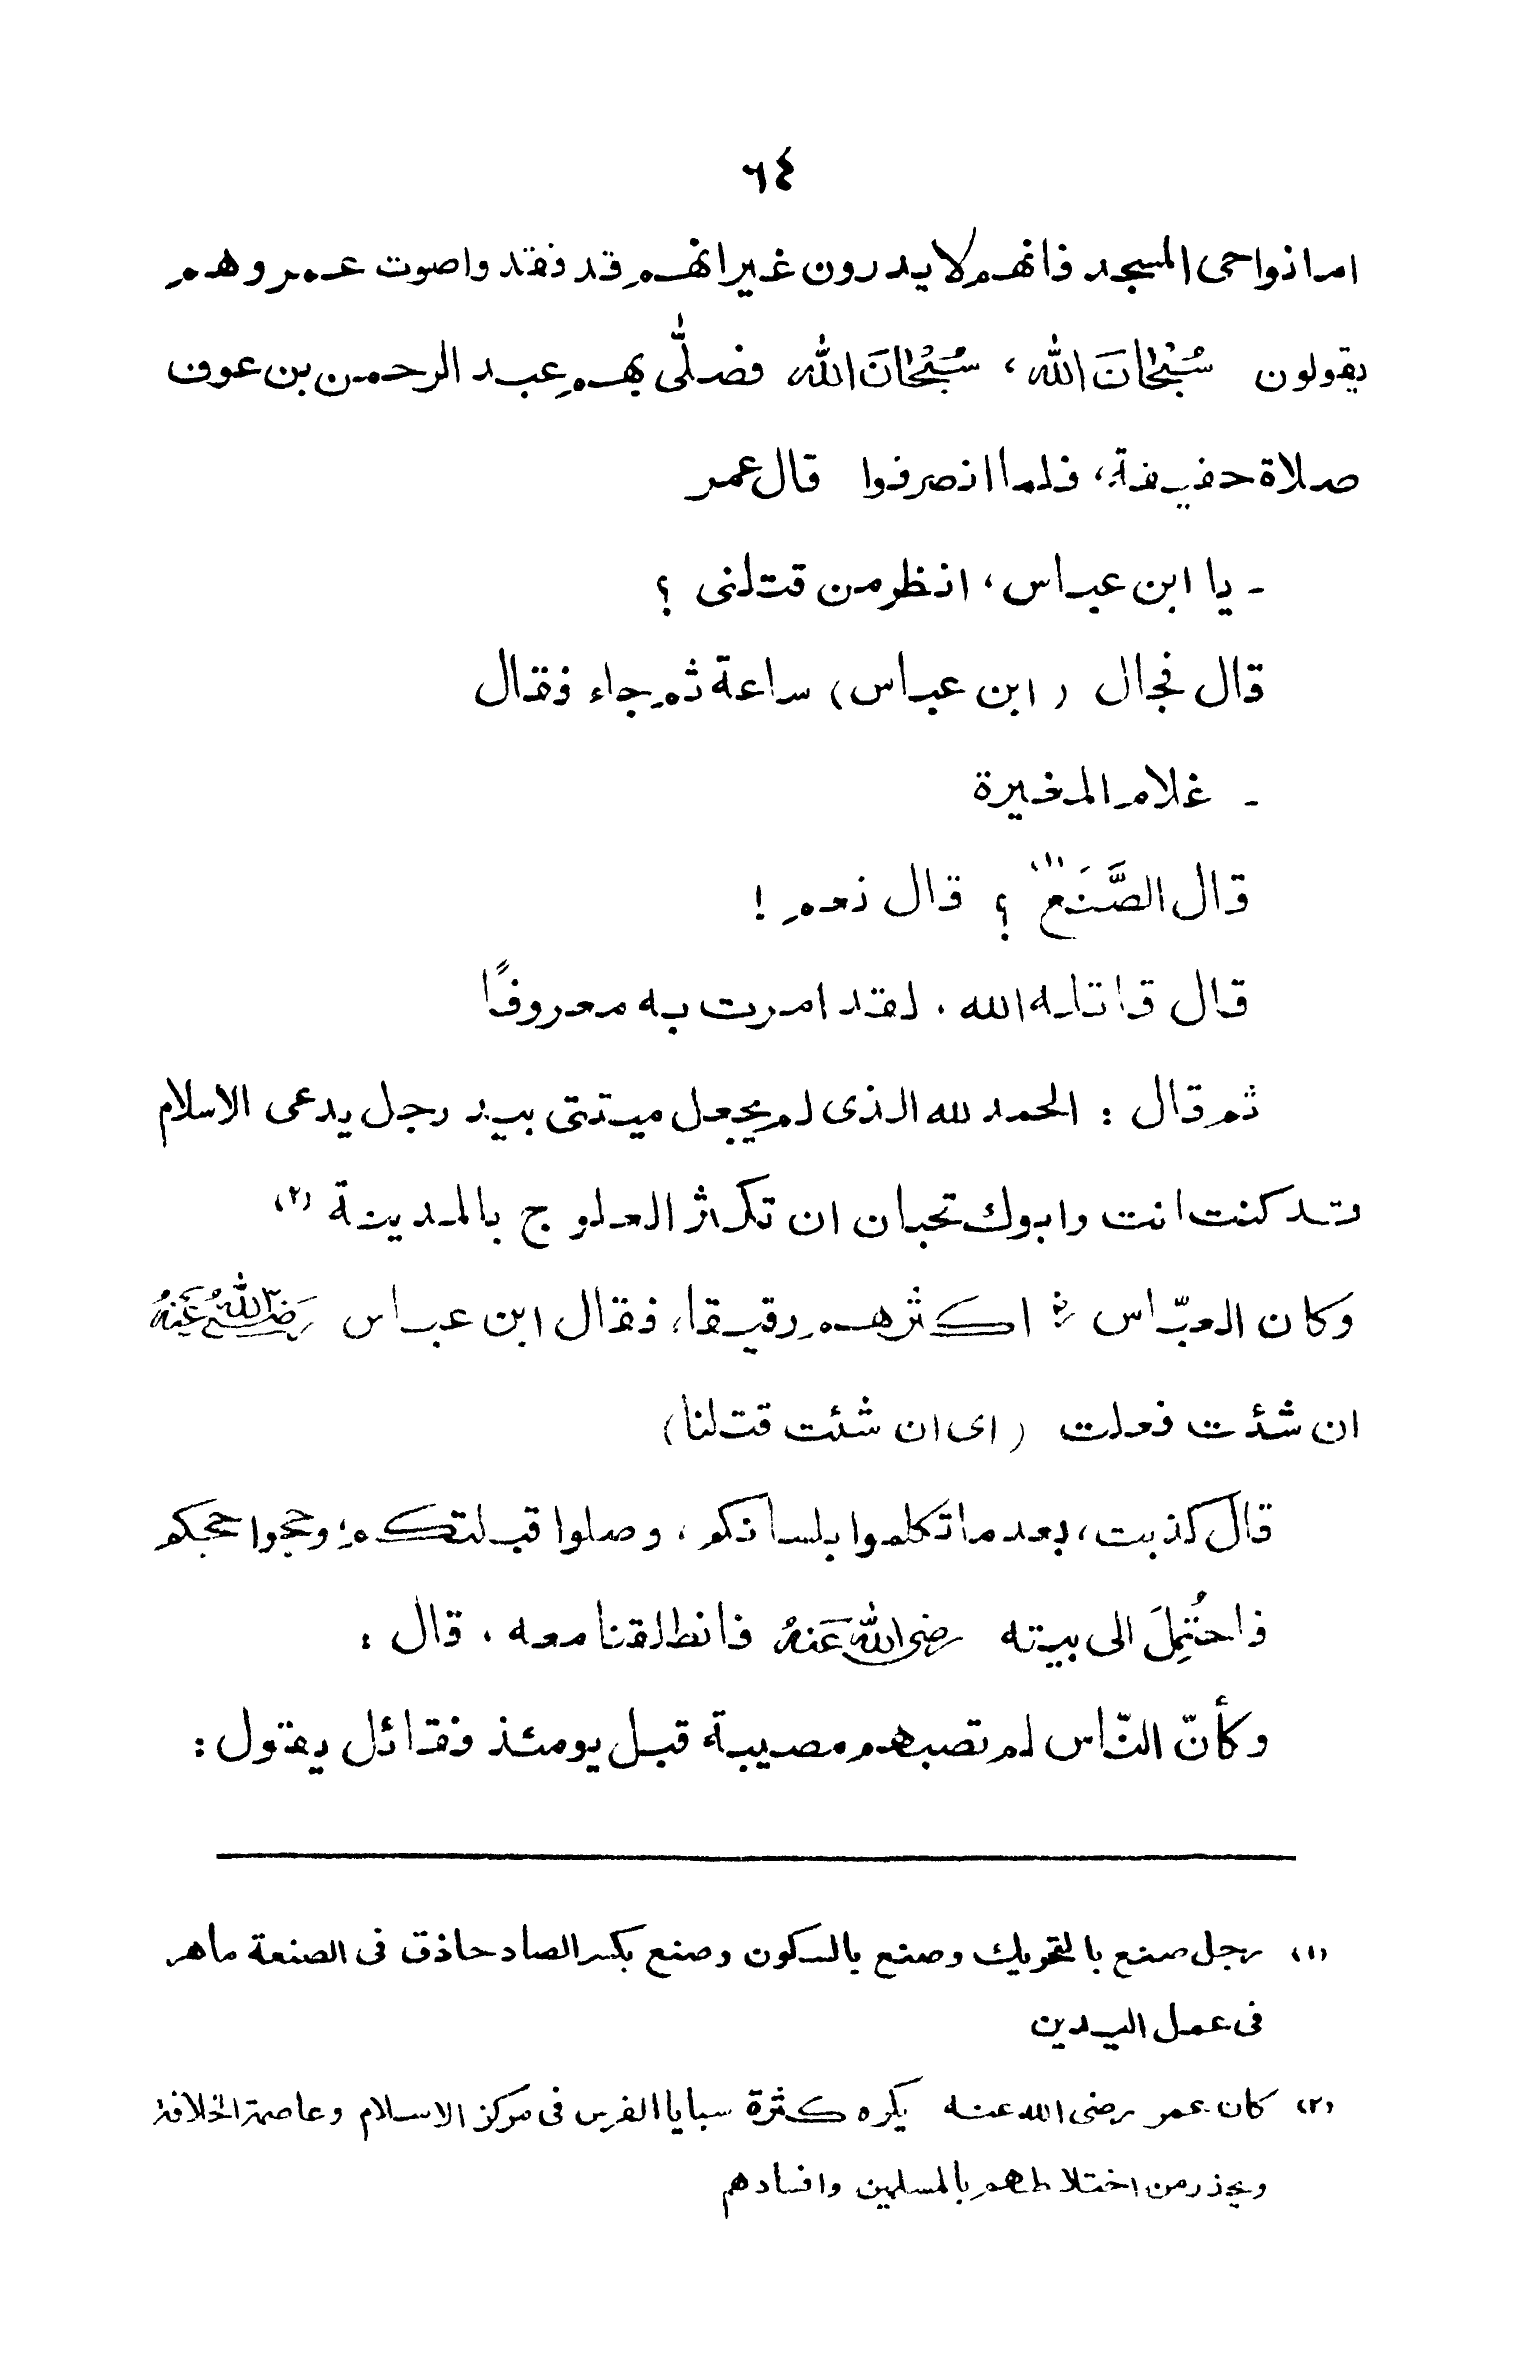 ٦٤
اما نواحى المسجد فانهم لا يدرون غير انهم قد فقدوا صوت عمر وهم
يقولون سُبْحَانَ الله ، سُبْحَانَ الله فصلّٰى بهم عبد الرحمن بن عوف
صلاة حفيفة ، فلما انصرفوا قال عمر
- يا ابن عباس ، انظر من قتلنى ؟
قال فجال ( ابن عباس ) ساعة ثم جاء فقال
- غلام المغيرة
قال الصَّنَع (١) ؟ قال نعم !
قال قاتله الله ، لقد امرت به معروفًا
ثم قال : الحمد لله الذى لم يجعل ميتتى بيد رجل يدعى الاسلام
وتد كنت انت وابوك تحبان ان تكثر العلوج بالمدينة (٢)
وكان العبّاس رض اكثرهم رقيقا ، فقال ابن عباس رضى الله عنه
ان شئت فعلت ( اى ان شئت قتلنا )
قال كذبت ، بعد ما تكلموا بلسانكم ، وصلوا قبلتكم ، وحجوا حجكم
فاحتُمِلَ الى بيته رضى الله عَنهُ فانطلقنا معه ، قال :
وكأنّ النّاس لم تصبهم مصيبة قبل يومئذ فقائل يقول :
(١) رجل صنع بالتحريك وصنع بالسكون وصنع بكسر الصاد حاذق فى الصنعة ماهر
فى عمل اليدين
(٢) كان عمر رضى الله عنه يكره كثرة سبايا الفرس فى مركز الاسلام وعاصمة الخلافة
ويحذر من اختلاطهم بالمسلمين وافسادهم